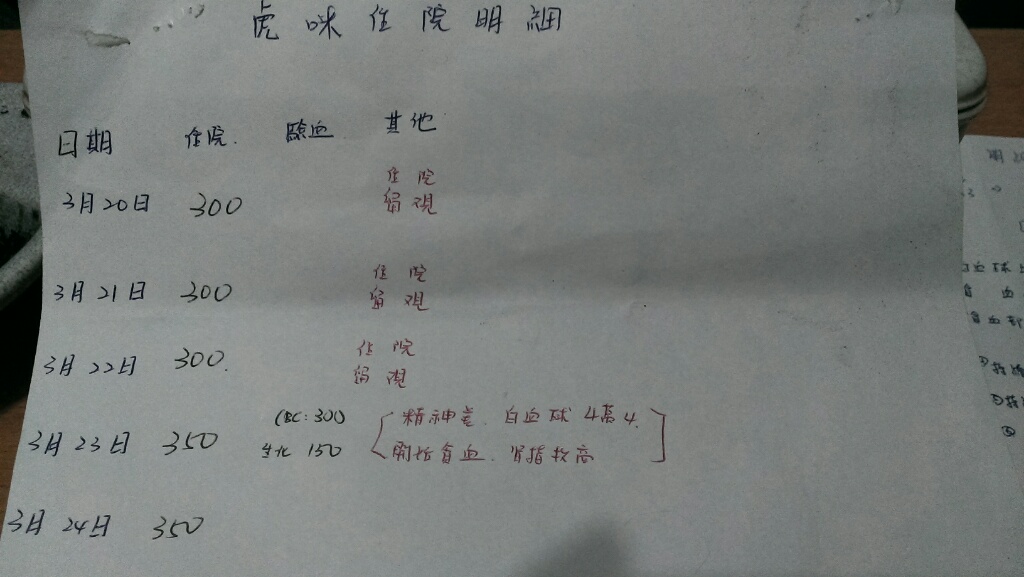 虎咪住院明細
日期 住院. 驗血 其他
住院
3月20日 300 留觀
住院
3月21日 300 留觀
住院
3月22日 300. 留觀
CBC:300 精神差、白血球4萬4.
3月23日 350 生化 150 開始貧血、腎指較高
3月24日 350